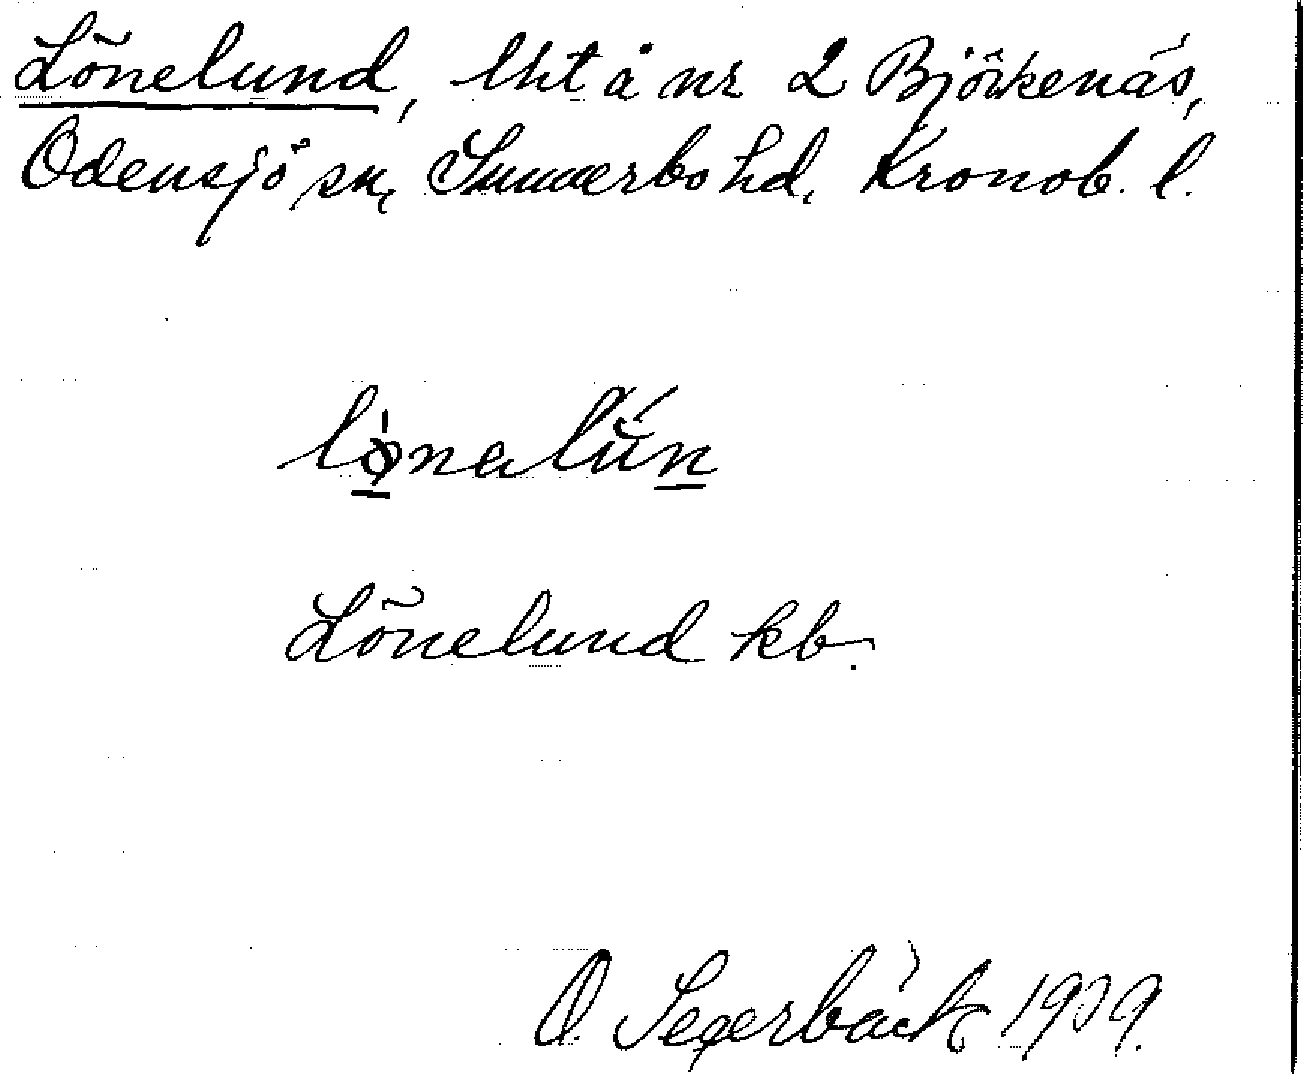 Lönelund, lht å nr 2 Björkenäs,
Odensjö sn, Sunnerbo hd, Kronob. l.
lø̀nalŭ́n
Lönelund kb.
O. Segerbäck 1939.